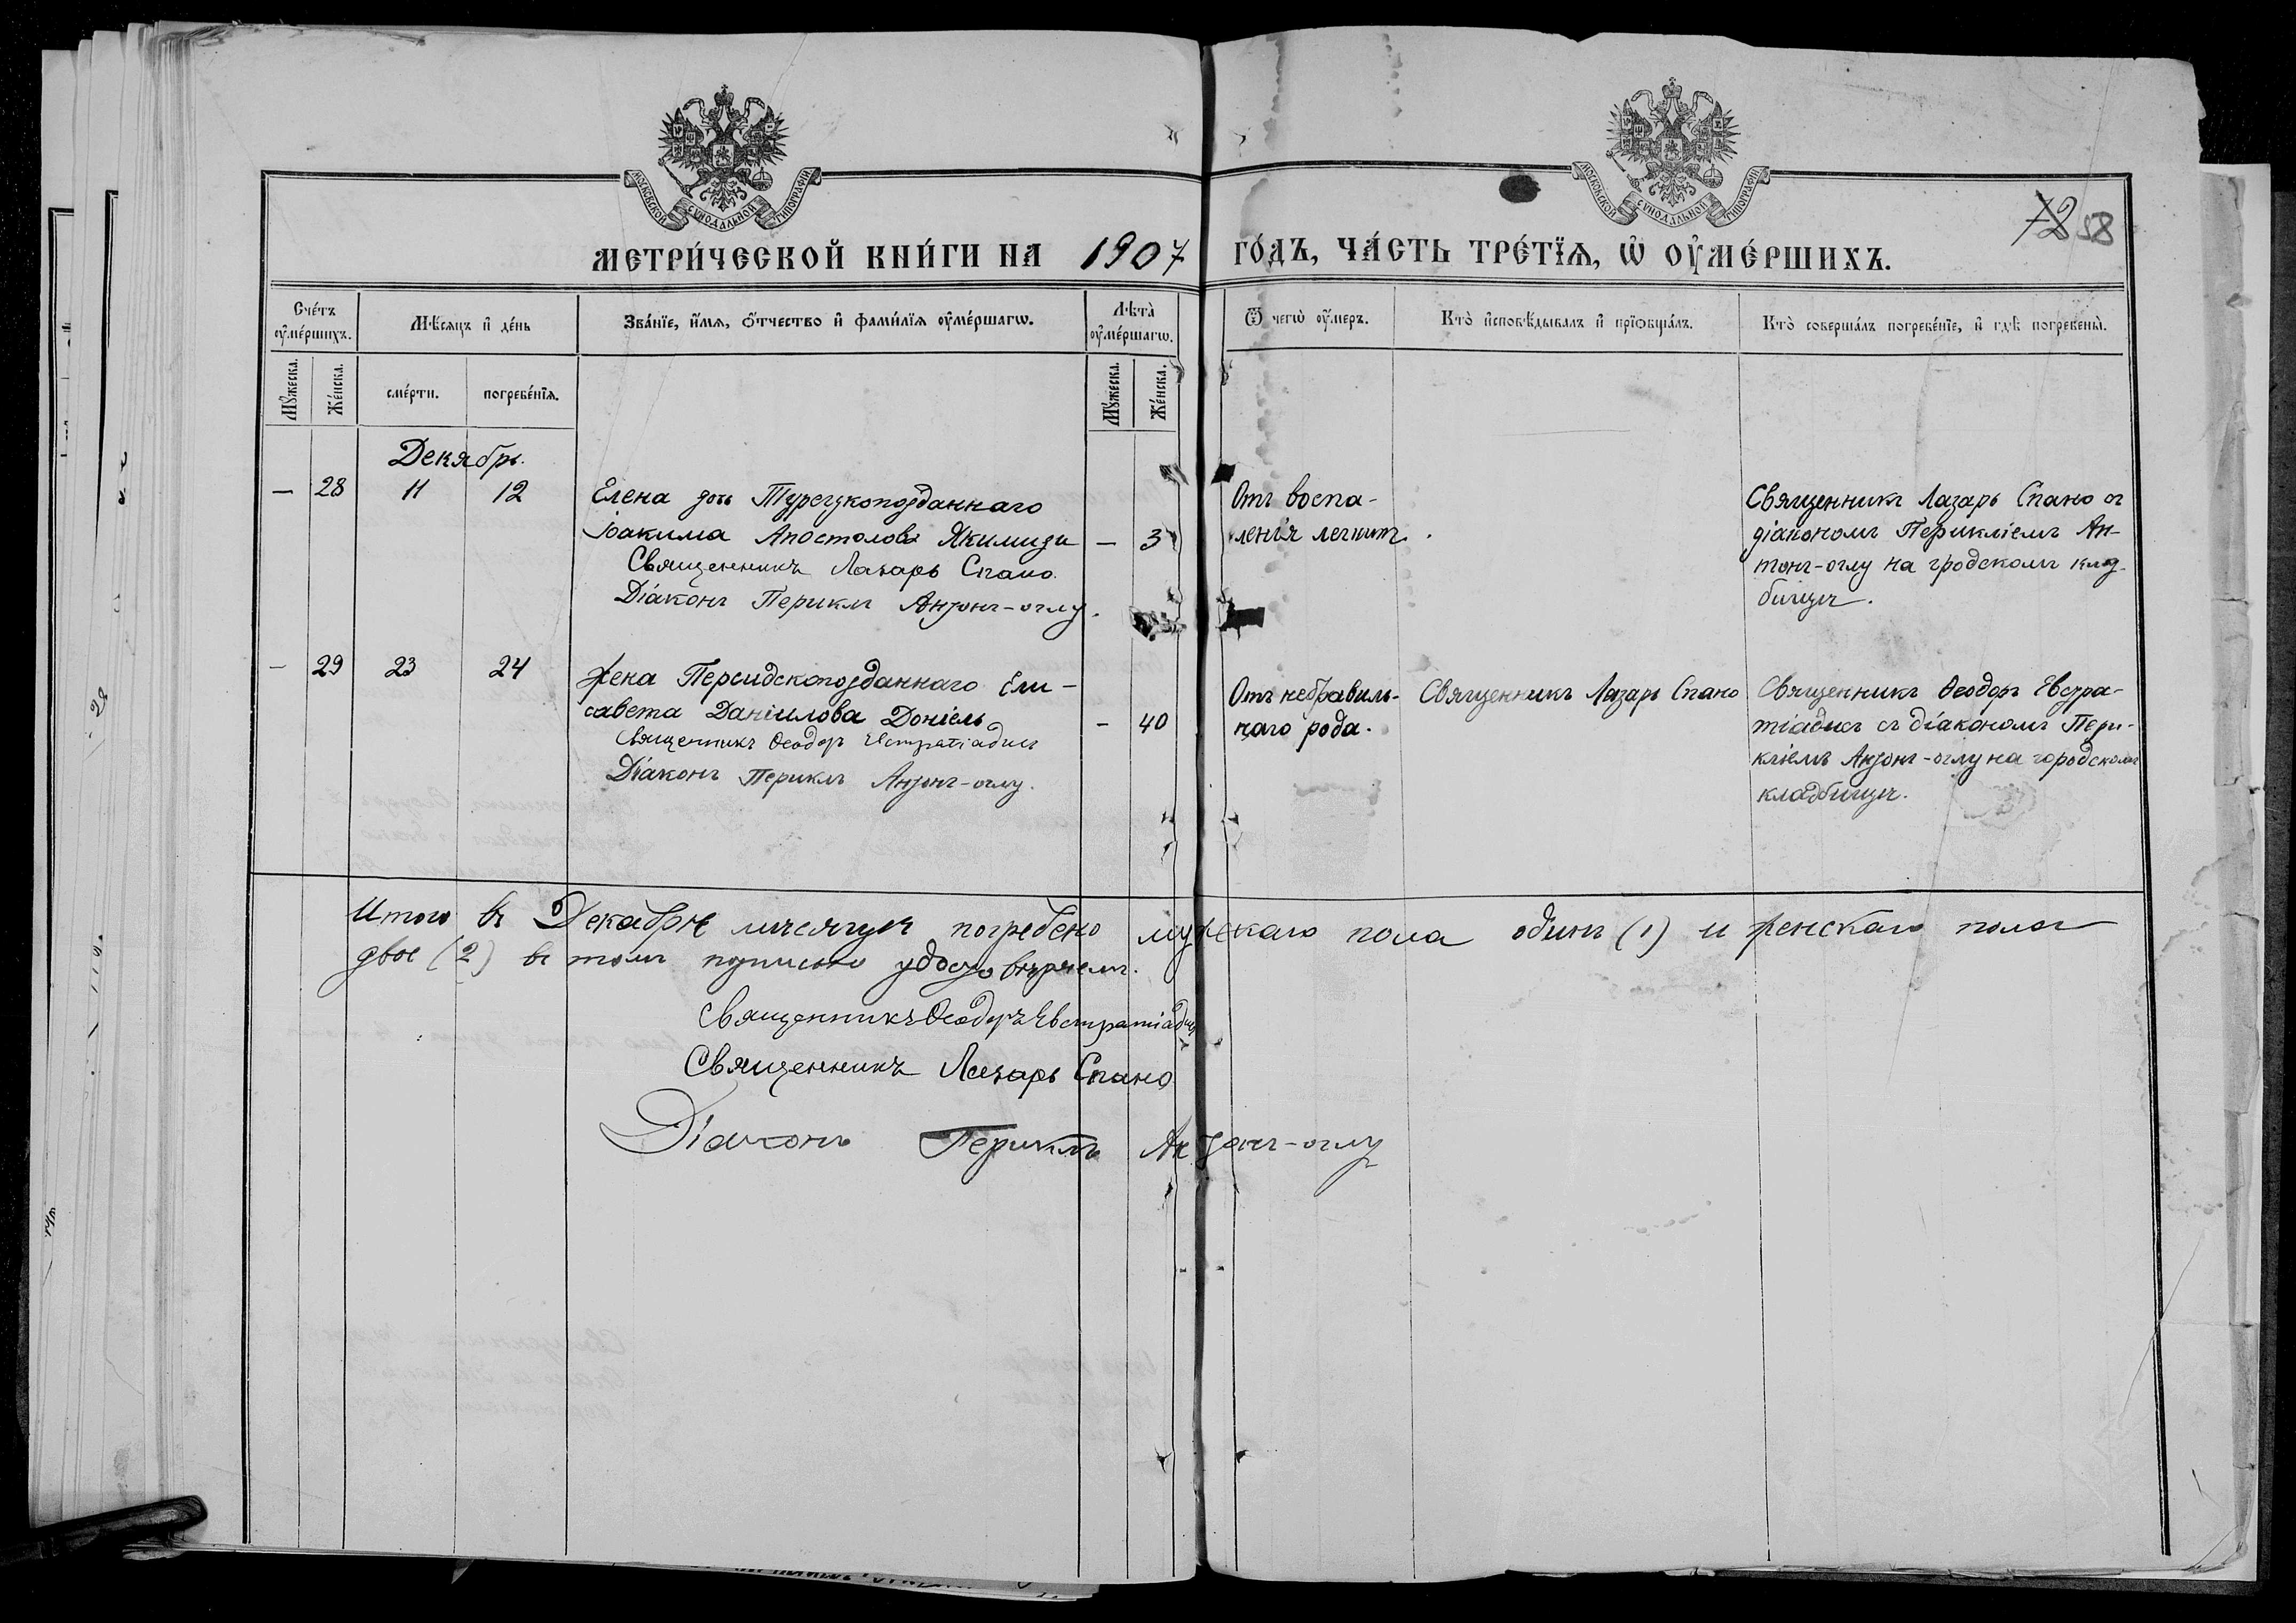 МОСКОВСКОЙ СѴНОДАЛЬНОЙ ТИПОГРАФІИ
МОСКОВСКОЙ СѴНОДАЛЬНОЙ ТИПОГРАФІИ
72 58
МЕТРИ́ЧЕСКОЙ КНИ́ГИ НА 1907 ГО́ДЪ, ЧА́СТЬ ТРЕ́ТЇѦ, Ѡ҆ ОУ҆МЕ́РШИХЪ.
Сче́тъ оу҆ме́ршихъ.
Мѣ́сѧцъ и҆ де́нь
Зва́нїе, и҆́мѧ, ѻ҆́тчество и҆ фами́лїѧ оу҆ме́ршагѡ.
Лѣ́та оу҆ме́ршагѡ.
Ѿ чегѡ̀ оу҆́меръ.
Кто̀ и҆сповѣ́дывалъ и҆ прїѡбща́лъ.
Кто̀ соверша́лъ погребе́нїе, и҆ гдѣ̀ погребены̀.
Мꙋ́жеска. Же́нска. сме́рти. погребе́нїѧ. Мꙋ́жеска. Же́нска.
Декябрь.
— 28 11 12
Елена дочь Турецкоподданнаго
Іоакима Апостолова Якимиди — 3
Священникъ Лазарь Спано.
Діаконъ Периклъ Антонъ-оглу.
Отъ воспа-
ленія легкихъ.
Священникъ Лазарь Спано съ
діакономъ Перикліемъ Ан-
тонъ-оглу на гродскомъ клад-
бищѣ.
— 29 23 24
Жена Персидскоподданнаго Ели-
савета Даніилова Доніель — 40
Священникъ Ѳеодоръ Евстратіадисъ
Діаконъ Периклъ Антонъ-оглу.
Отъ небравиль-
наго рода.
Священникъ Лазарь Спано
Священникъ Ѳеодоръ Евстра-
тіадисъ съ діакономъ Пери-
кліемъ Антонъ-оглу на городскомъ
кладбищѣ.
Итого въ Декабрѣ мѣсяцѣ погребено мужскаго пола одинъ (1) и женскаго пола
двое (2) въ томъ подписью удостовѣряемъ.
Священникъ Ѳеодоръ Евстратіадисъ
Священникъ Лазарь Спано
Діаконъ Периклъ Антонъ-оглу